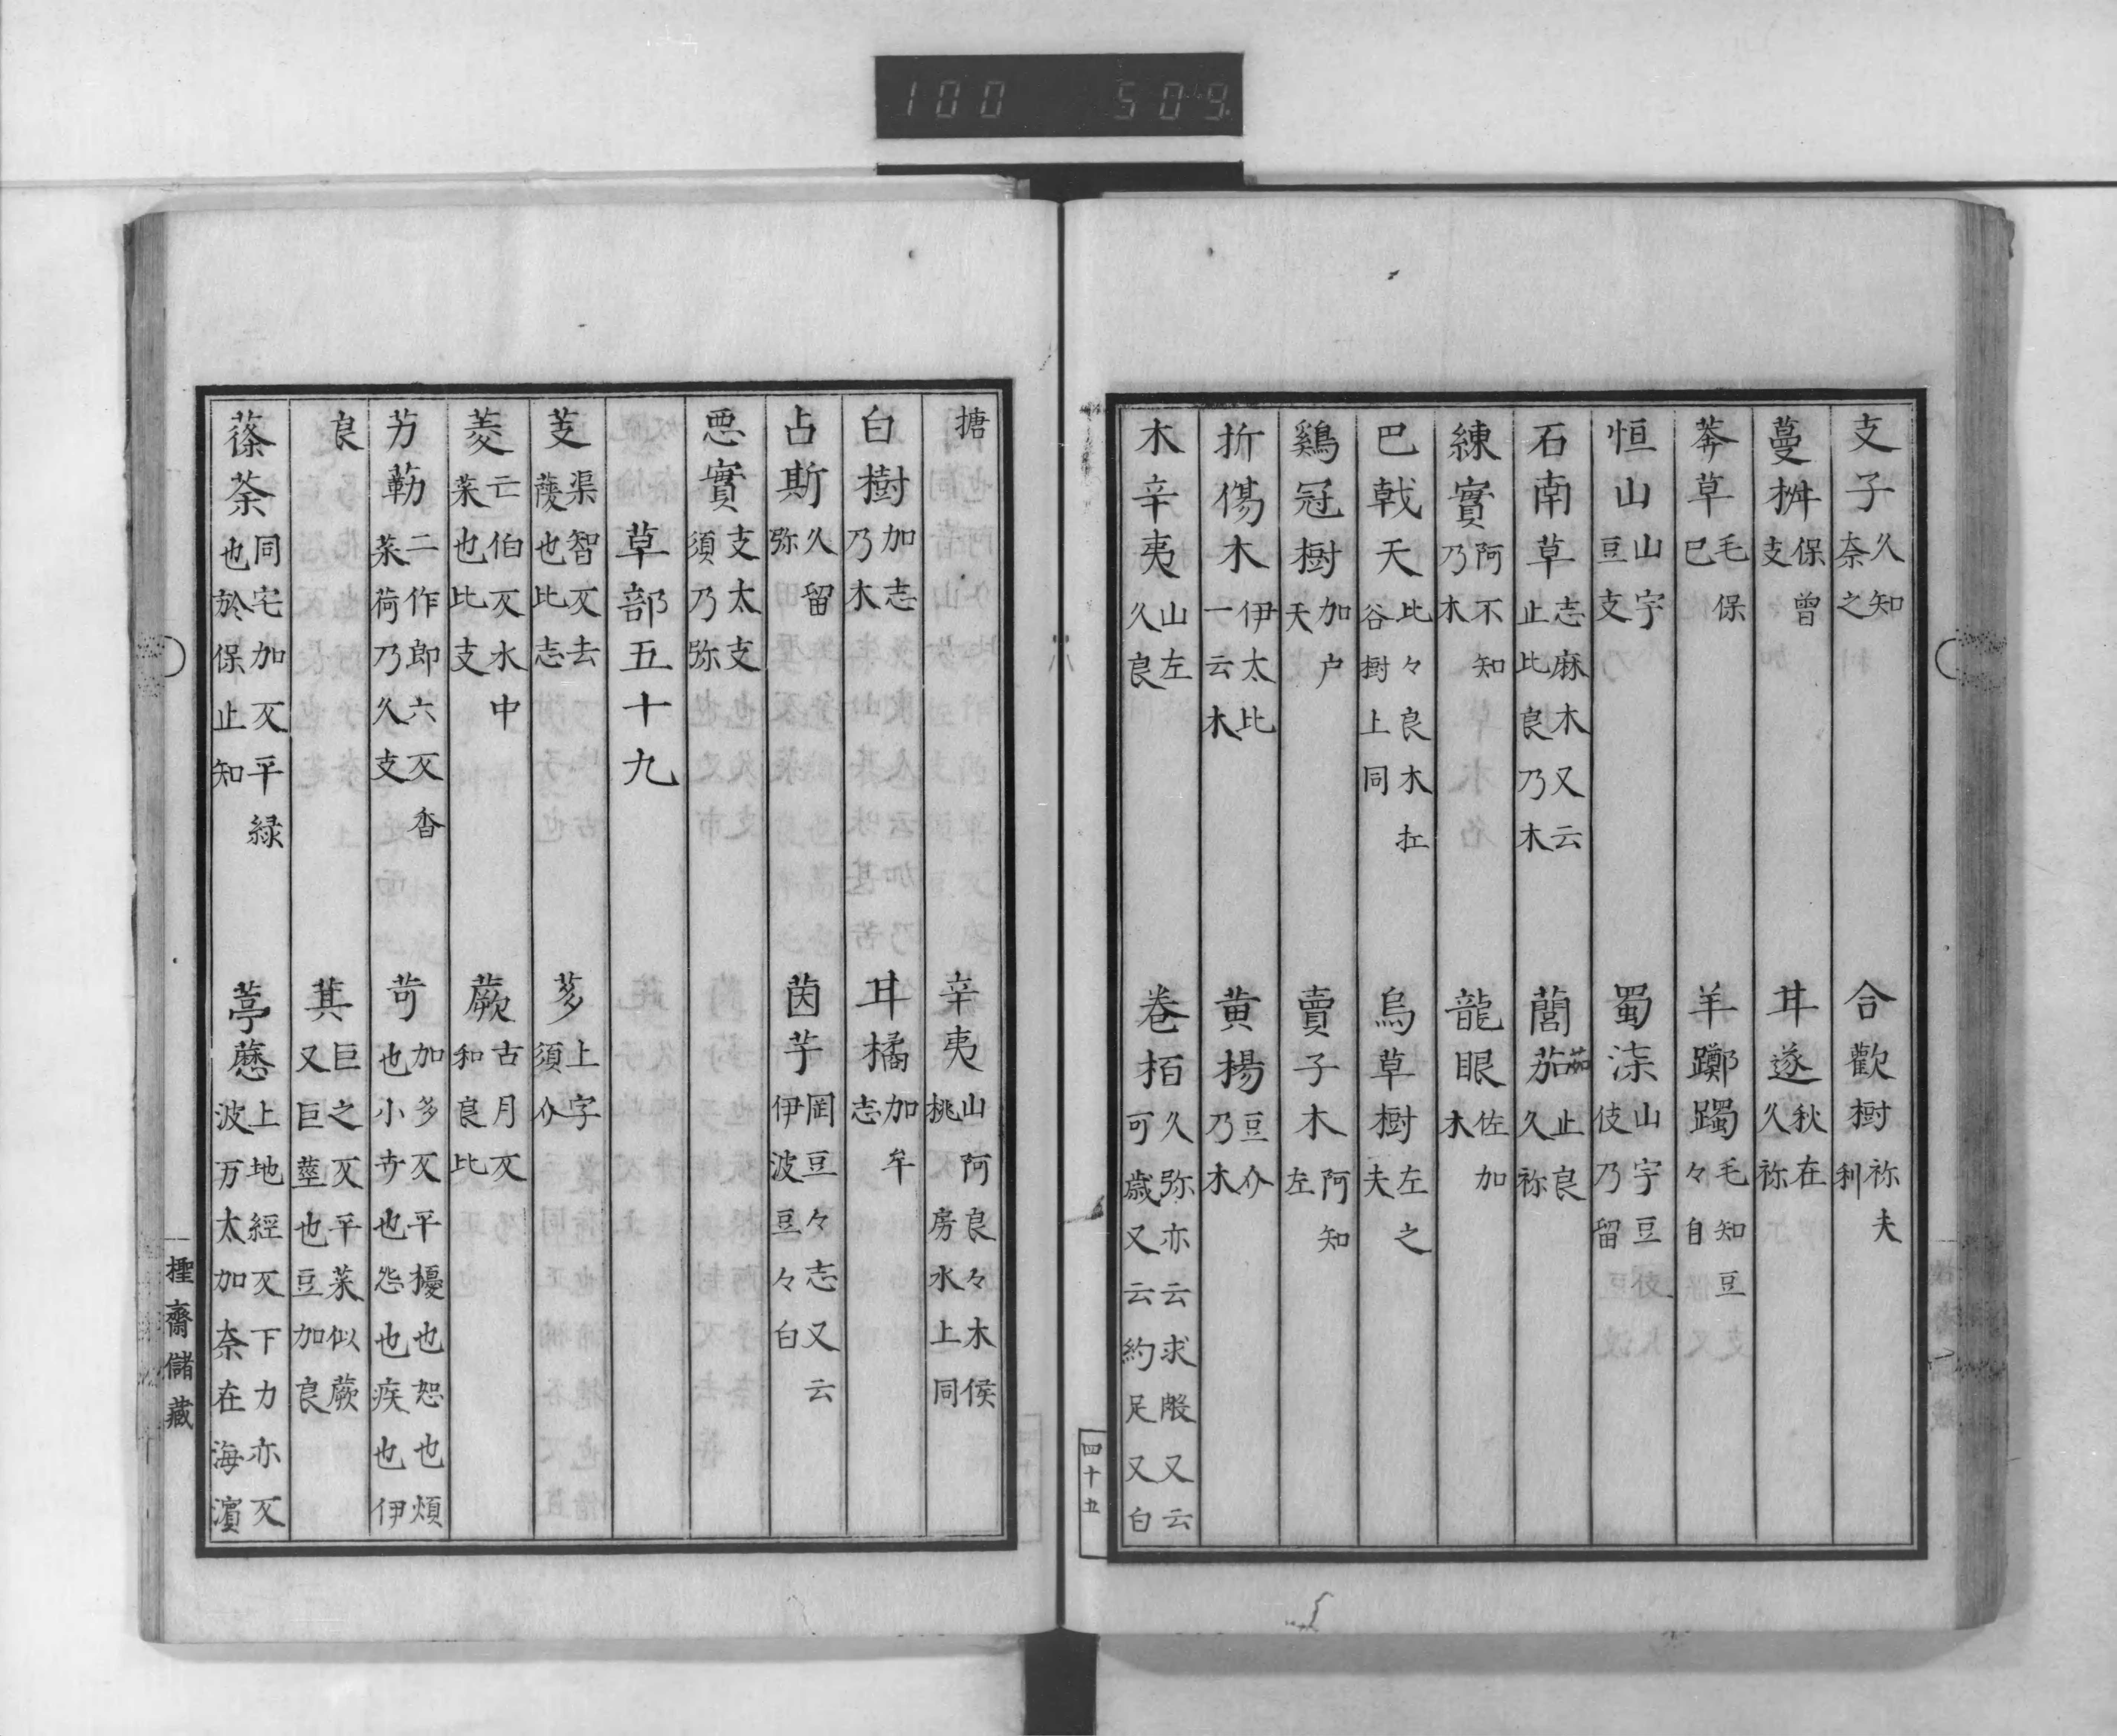 支子久知奈之 合歡樹祢夫利
蔓椒保曾支 甘遂秋在久祢
莽草毛保巳 羊躑躅毛知豆々自
恒山山宇豆支 蜀漆山宇豆伎乃留
石南草志麻木又云止比良乃木 藘茹茹止良久祢
練實阿不知乃木 龍眼佐加木
巴戟天比々良木扗谷樹上同 烏草樹左之夫
鷄冠樹加户天 賣子木阿知左
折傷木伊太比一云木 黄楊豆介乃木
木辛夷山左久良 卷栢久弥亦云求殷又云可歳又云約足又白
四十五
搪 辛夷山阿良々木侯桃房水上同
白樹加志乃木 甘橘加牟志
占斯久留弥 茵芋罔豆々志又云伊波豆々白
悪實支太支須乃弥
草部五十九
芰渠智反去薐也比志 芗上字須介
菱亡伯反水中菜也比支 蕨古月反和良比
艻勒二作郎六反香菜荷乃久支 苛加多反平擾也恕也煩也小芐也怨也疾也伊
良 萁巨之反平菜似蕨又巨莖也豆加良
蓧荼同宅加反平緑也於保止知 葶藶上地經反下力亦反波万太加奈在海濱
摼齋儲藏
100 509